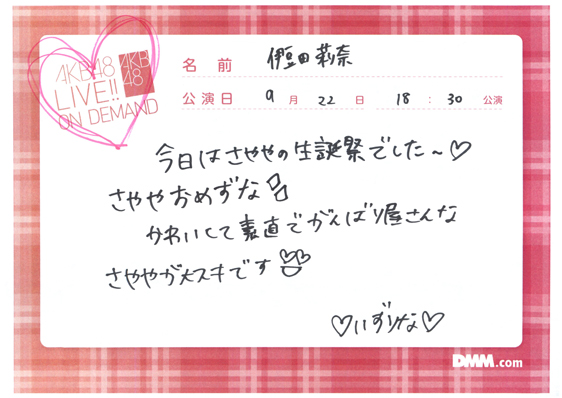 AKB48
LIVE!!
ON DEMAND
AKB
48
名 前 伊豆田莉奈
公演日 9月 22日 18:30 公演
今日はさややの生誕祭でした～♡
さややおめずな
かわいくて素直でがんばり屋さんな
さややが大スキです
♡いずりな♡
DMM.com